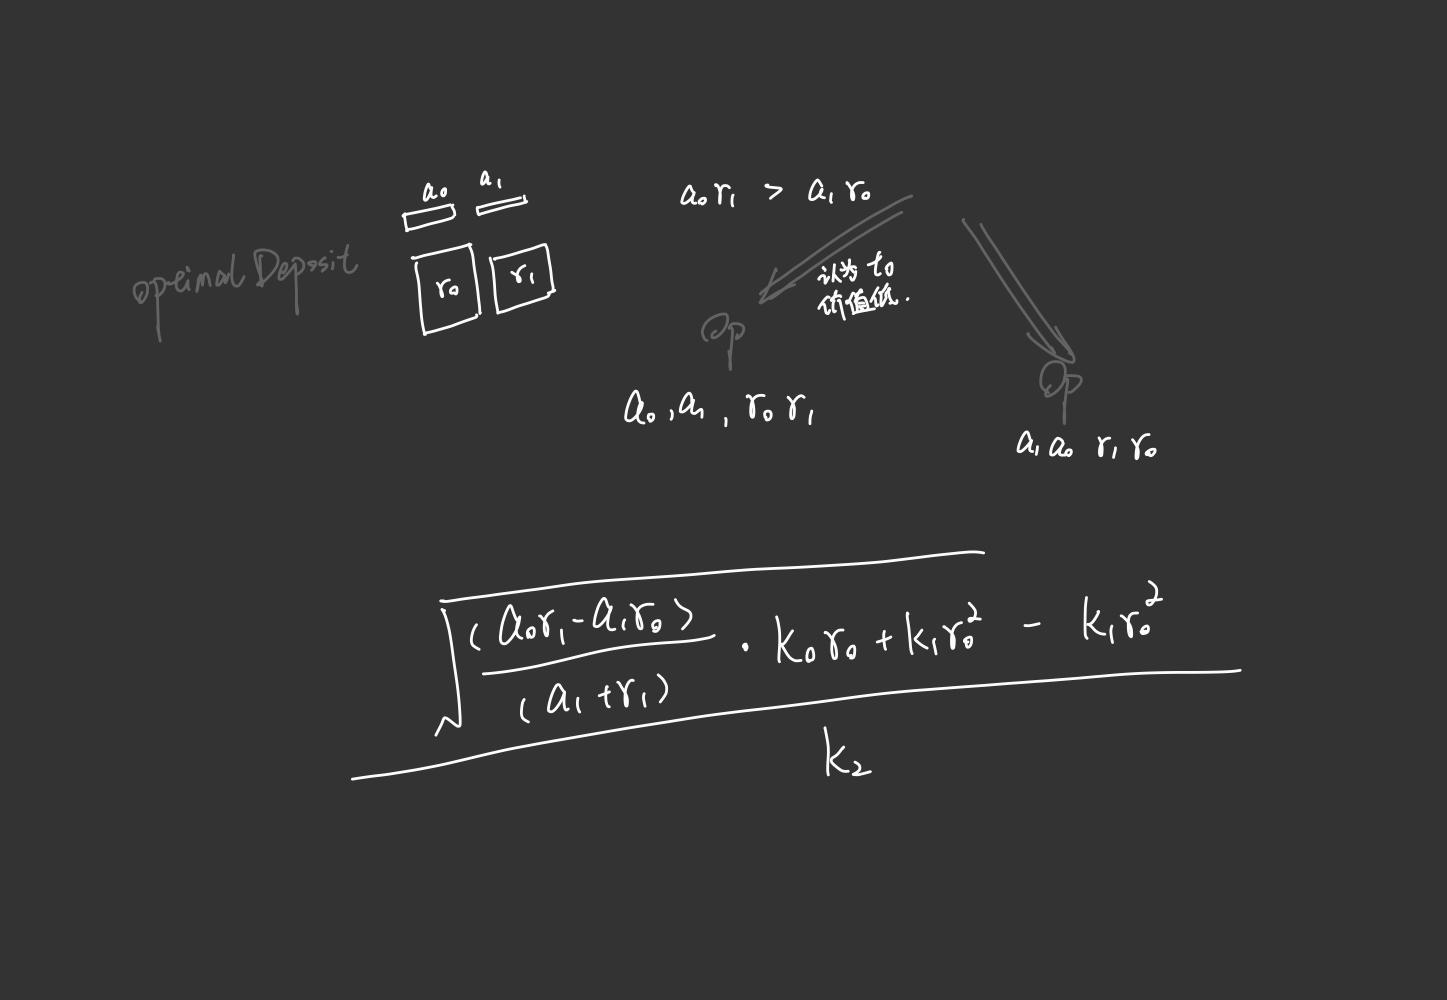 a₀ a₁
r₀ r₁
opeimal Deposit
a₀r₁ > a₁r₀
认为 t₀
价值低.
Op
a₀,a₁, r₀ r₁
Op
a₁ a₀ r₁ r₀
√((a₀r₁-a₁r₀)/(a₁+r₁) · k₀r₀+k₁r₀²) - k₁r₀²
k₂